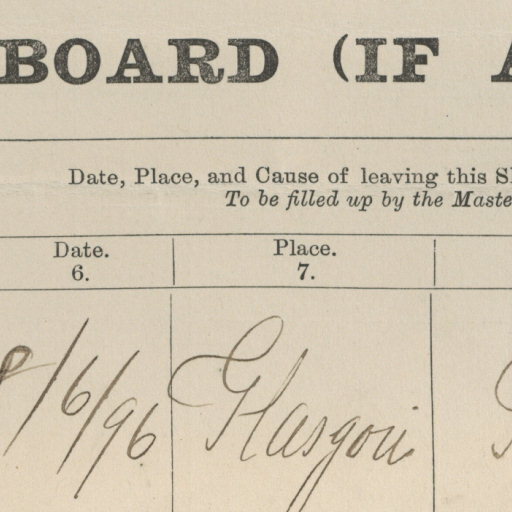 BOARD (IF A
Date, Place, and Cause of leaving this Sh
To be filled up by the Maste
Date. Place.
6. 7.
8/6/96 Glasgow